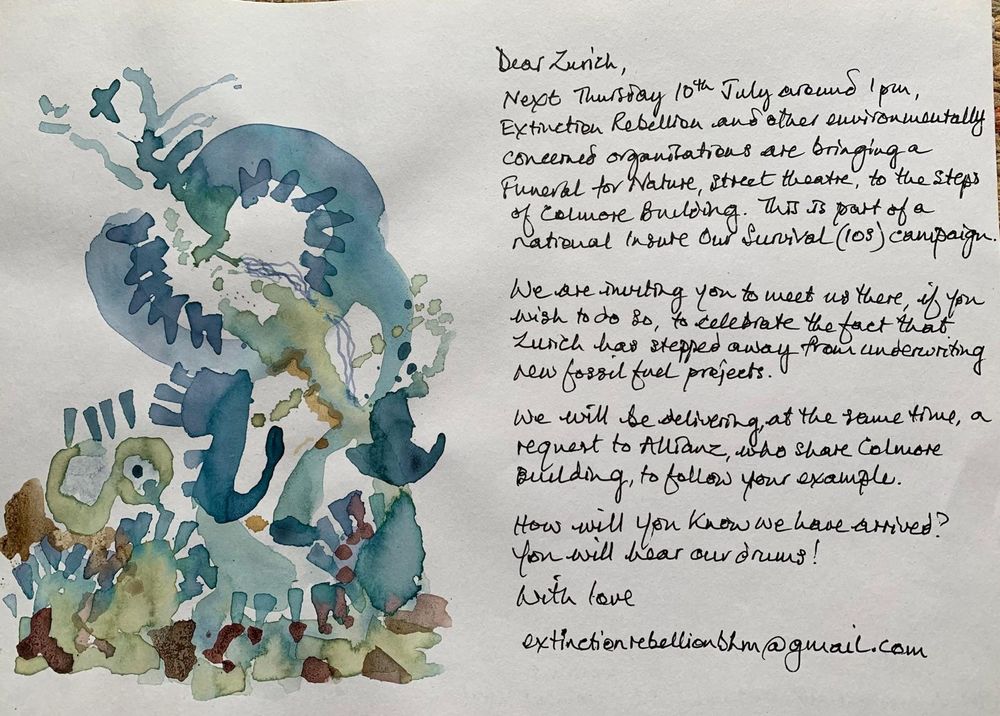 Dear Zurich,
Next Thursday 10th July around 1pm,
Extinction Rebellion and other environmentally
concerned organisations are bringing a
Funeral for Nature, street theatre, to the steps
of Colmore Building. This is part of a
national Insure Our Survival (IOS) campaign.
We are inviting you to meet us there, if you
wish to do so, to celebrate the fact that
Zurich has stepped away from underwriting
new fossil fuel projects.
We will be delivering, at the same time, a
request to Allianz, who share Colmore
Building, to follow your example.
How will you know we have arrived?
You will hear our drums!
With love
extinctionrebellionbhm@gmail.com